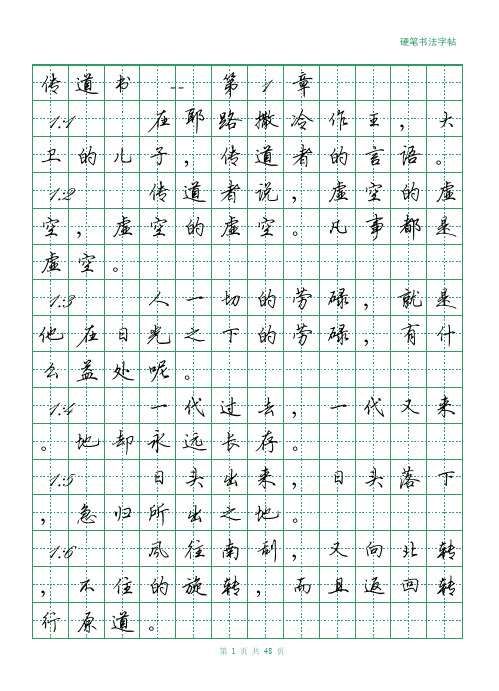 硬笔书法字帖
传道书 -- 第1章
1:1 在耶路撒冷作王，大
卫的儿子，传道者的言语。
1:2 传道者说，虚空的虚
空，虚空的虚空。凡事都是
虚空。
1:3 人一切的劳碌，就是
他在日光之下的劳碌，有什
么益处呢。
1:4 一代过去，一代又来
。地却永远长存。
1:5 日头出来，日头落下
，急归所出之地。
1:6 风往南刮，又向北转
，不住的旋转，而且返回转
行原道。
第 1 页 共 48 页